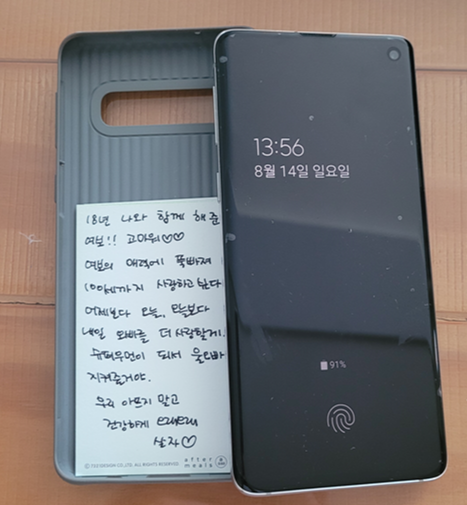 18년 나와 함께 해준
여보!! 고마워♡♡
여보의 매력에 푹빠져
100세까지 사랑하고 싶다
어제보다 오늘, 오늘보다
내일 오빠를 더 사랑할게!
슈퍼우먼이 되서 울오빠
지켜줄거야.
우리 아프지 말고
건강하게 오래오래
살자♡
ALL RIGHTS RESERVED.
after
meals
13:56
8월 14일 일요일
91%